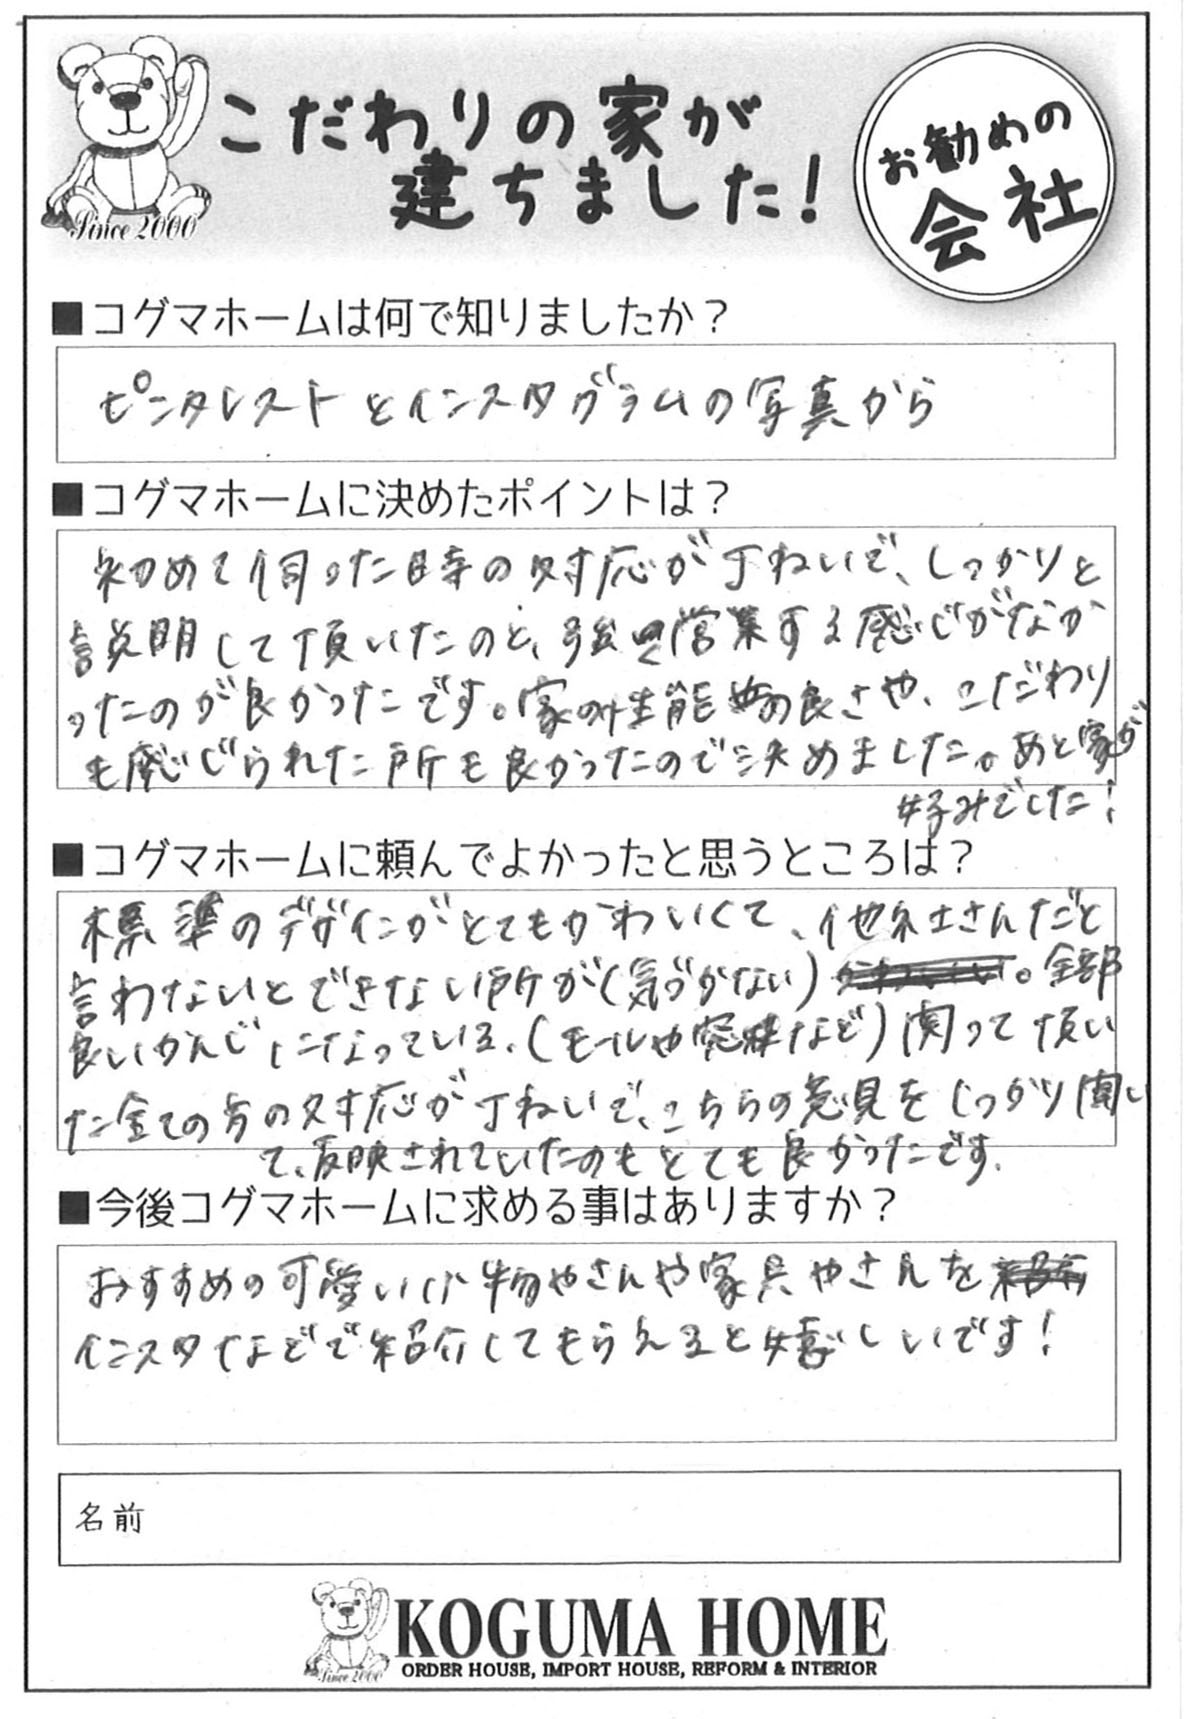 こだわりの家が
建ちました!
お勧めの
会社
Since 2000
■コグマホームは何で知りましたか?
ピンタレストとインスタグラムの写真から
■コグマホームに決めたポイントは?
初めて伺った時の対応が丁ねいで、しっかりと
説明して頂いたのと、強く営業する感じがなか
ったのが良かったです。家の性能の良さや、こだわり
も感じられた所も良かったので決めました。あと家が
好みでした!
■コグマホームに頼んでよかったと思うところは?
標準のデザインがとてもかわいくて、他社さんだと
言わないとできない所が(気づかない)。全部
良いかんじになっている。(モールや窓枠など)関って頂い
た全ての方の対応が丁ねいで、こちらの意見をしっかり聞い
て、反映されていたのもとても良かったです。
■今後コグマホームに求める事はありますか?
おすすめの可愛い小物やさんや家具やさんを
インスタなどで紹介してもらえると嬉しいです!
名前
Since 2000
KOGUMA HOME
ORDER HOUSE, IMPORT HOUSE, REFORM & INTERIOR